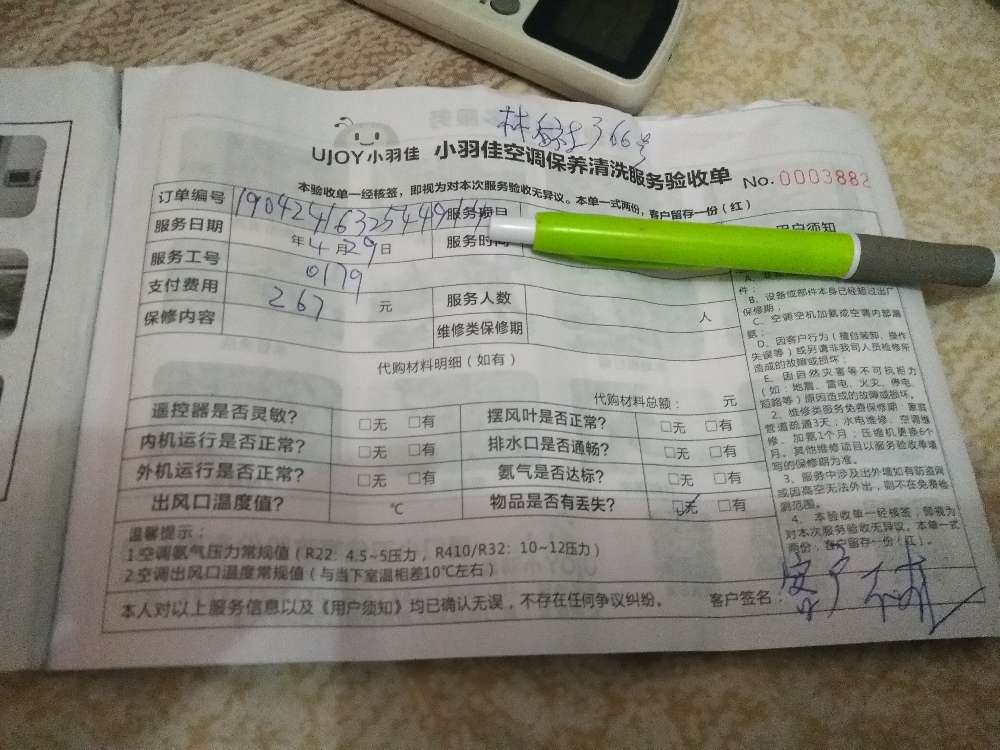 366号
UJOY小羽佳 小羽佳空调保养清洗服务验收单 No. 0003882
本验收单一经核签，即视为对本次服务验收无异议。本单一式两份，客户留存一份（红）
订单编号 服务项目 用户须知
服务日期 年4月29日 服务时间
服务工号 0179
支付费用 267 元 服务人数 人
保修内容 维修类保修期
件；
B、设备或部件本身已经超过出厂
保修期；
C、空调空机加氨或空调内部漏
氨；
D、因客户行为（擅自装卸、操作
失误等）或另请非我司人员检修所
造成的故障或损坏；
E、因自然灾害等不可抗拒力
（如：地震、雷电、火灾、停电、
短路等）原因造成的故障或损坏。
2、维修类服务免费保修期：家庭
管道疏通3天；水电维修、空调维
修、加氨1个月；压缩机更换6个
月。其他维修项目以服务验收单填
写的保修期为准。
3、服务中涉及出外墙如有防盗网
或因高空无法外出，则不在免费检
测范围。
4、本验收单一经核签，即视为
对本次服务验收无异议。本单一式
两份，客户留存一份（红）。
代购材料明细（如有）
代购材料总额： 元
遥控器是否灵敏？ □无 □有 摆风叶是否正常？ □无 □有
内机运行是否正常？ □无 □有 排水口是否通畅？ □无 □有
外机运行是否正常？ □无 □有 氨气是否达标？ □无 □有
出风口温度值？ ℃ 物品是否有丢失？ □无 □有
温馨提示：
1.空调氨气压力常规值（R22：4.5~5压力，R410/R32：10~12压力）
2.空调出风口温度常规值（与当下室温相差10℃左右）
本人对以上服务信息以及《用户须知》均已确认无误，不存在任何争议纠纷。 客户签名：
客户不在